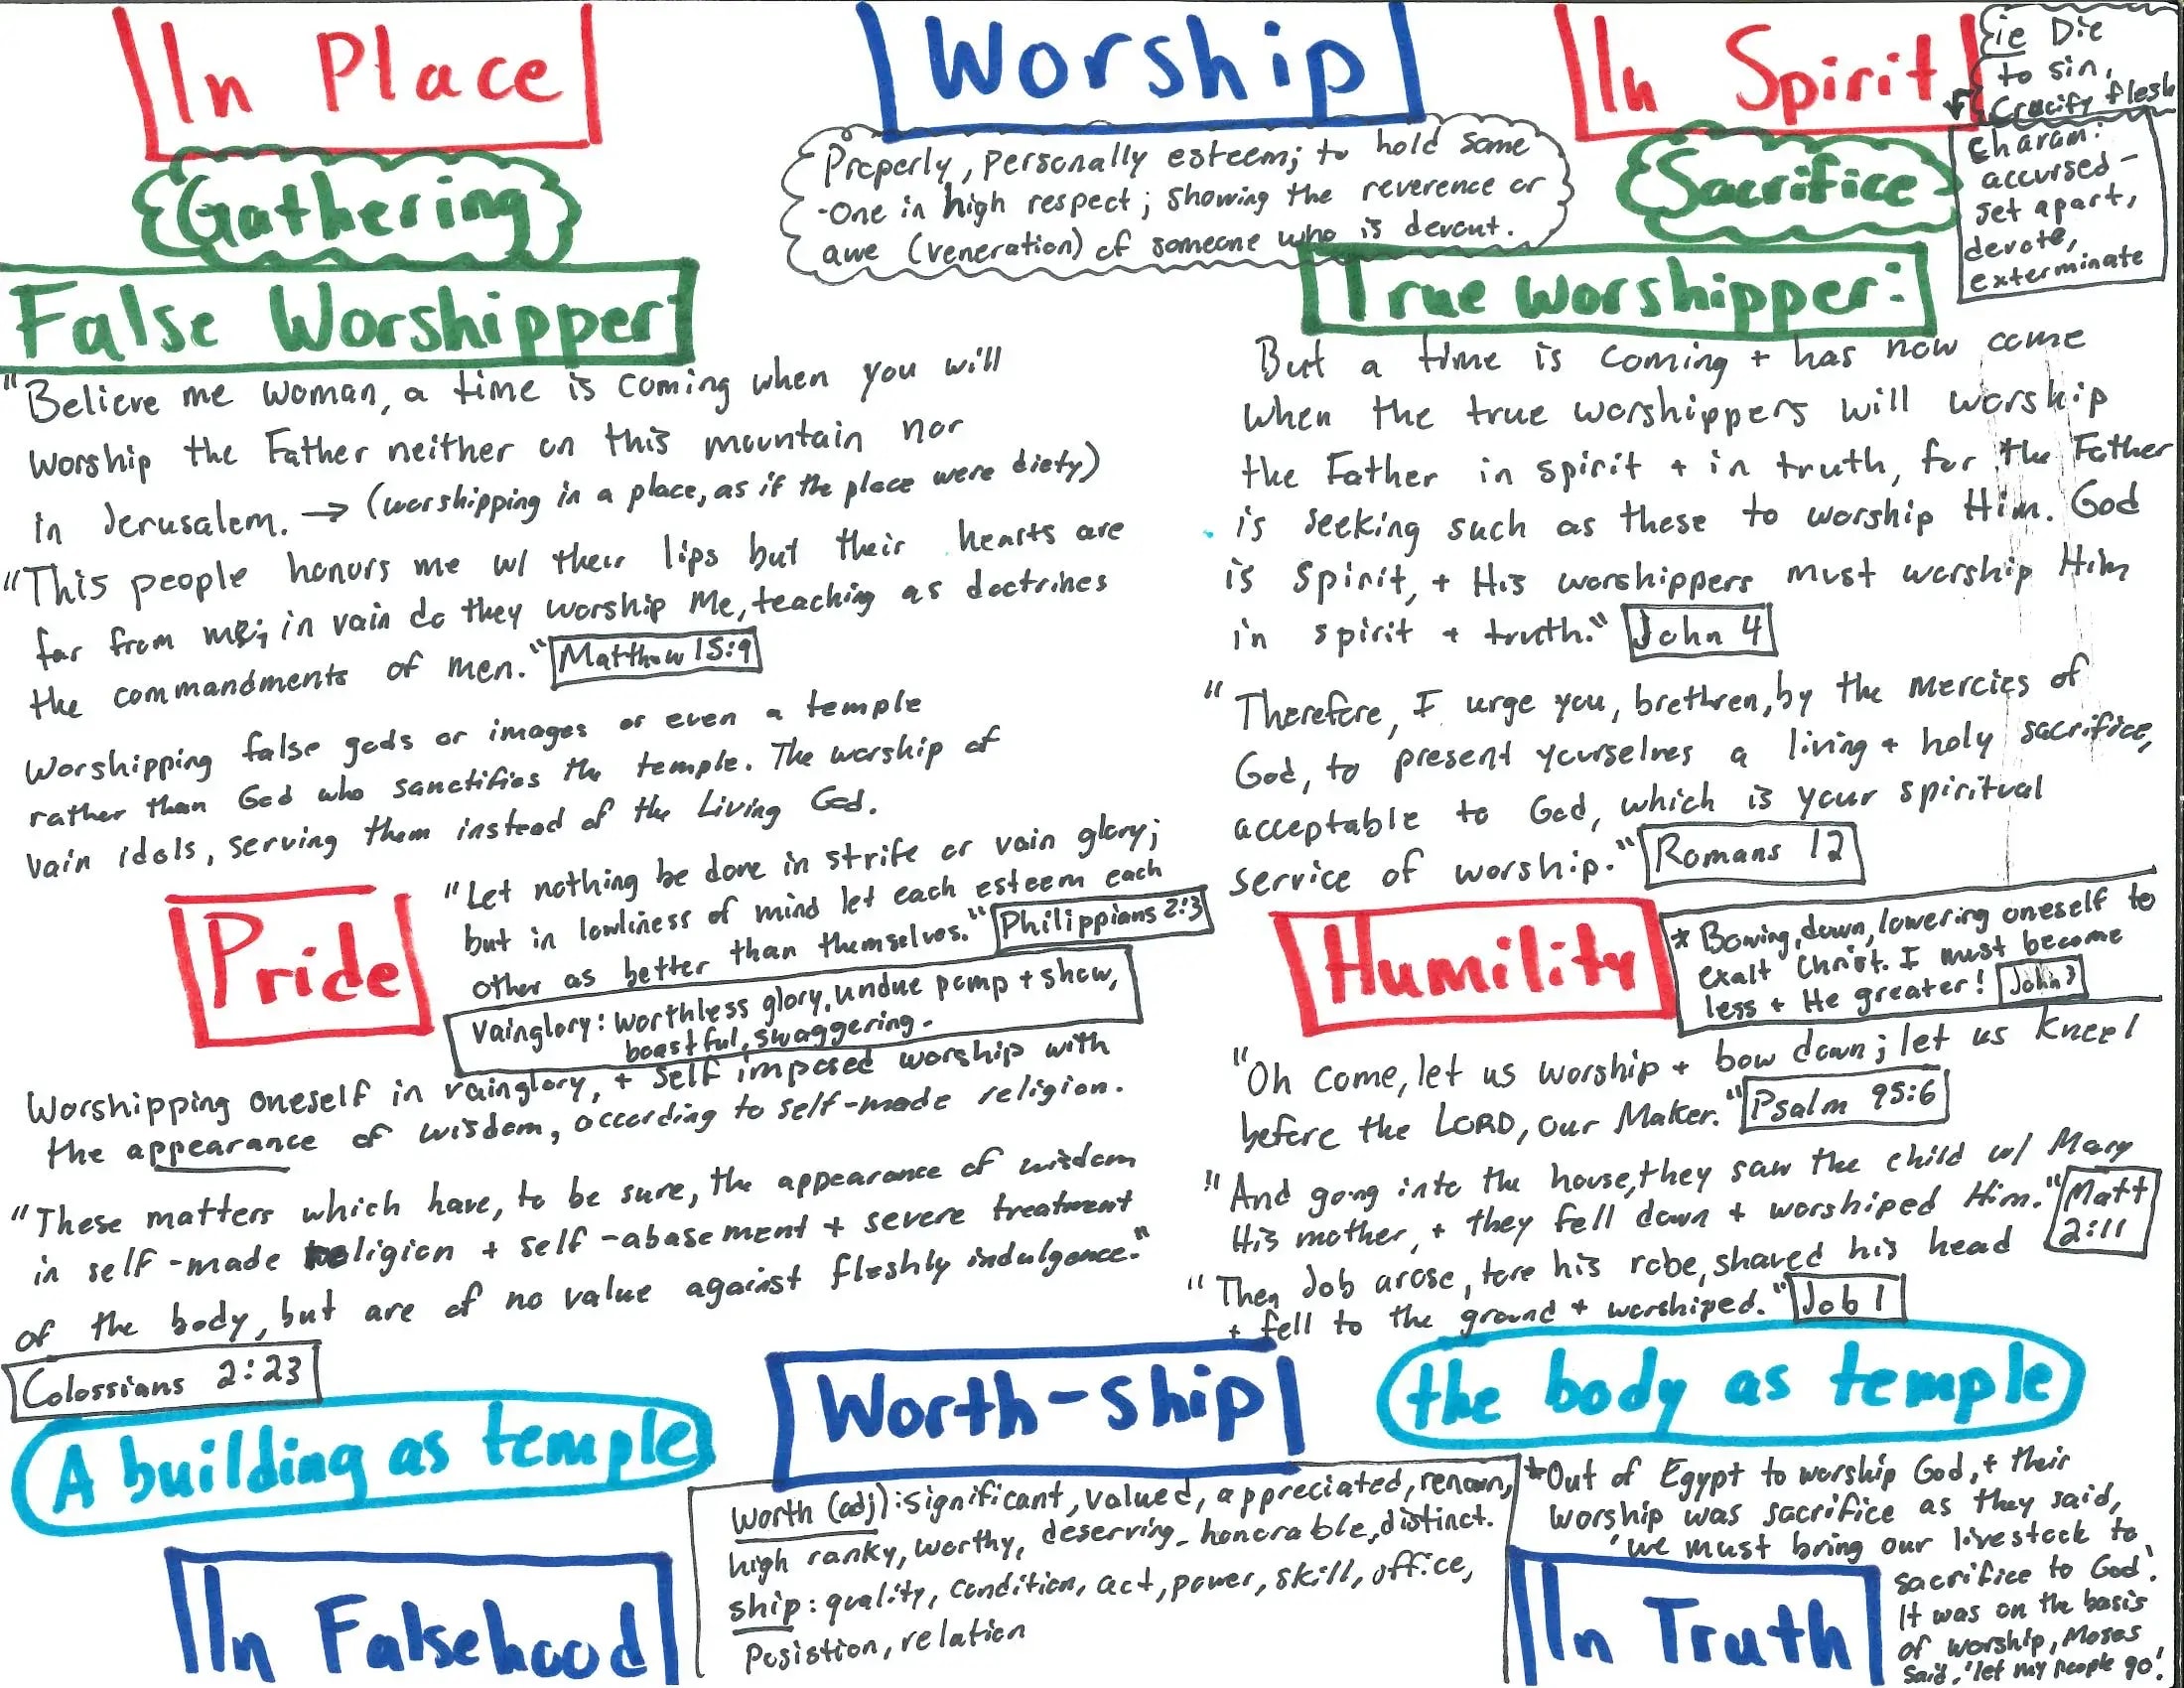 In Place
Gathering
False Worshipper
"Believe me woman, a time is coming when you will
worship the Father neither on this mountain nor
in Jerusalem. → (worshipping in a place, as if the place were diety)
"This people honors me w/ their lips but their hearts are
far from me; in vain do they worship Me, teaching as doctrines
the commandments of men." Matthew 15:9
Worshipping false gods or images or even a temple
rather than God who sanctifies the temple. The worship of
vain idols, serving them instead of the Living God.
Pride
"Let nothing be done in strife or vain glory;
but in lowliness of mind let each esteem each
other as better than themselves." Philippians 2:3
Vainglory: worthless glory, undue pomp + show,
boastful, swaggering.
Worshipping oneself in vainglory, + self imposed worship with
the appearance of wisdom, according to self-made religion.
"These matters which have, to be sure, the appearance of wisdom
in self-made religion + self-abasement + severe treatment
of the body, but are of no value against fleshly indulgence."
Colossians 2:23
A building as temple
In Falsehood
Worship
Properly, personally esteem; to hold some
-one in high respect; showing the reverence or
awe (veneration) of someone who is devout.
Worth-ship
Worth (adj): significant, valued, appreciated, renown,
high ranky, worthy, deserving, honorable, distinct.
ship: quality, condition, act, power, skill, office,
Posistion, relation
In Spirit
ie Die
to sin,
Crucify flesh
Sacrifice
charam:
accursed-
set apart,
devote,
exterminate
True Worshipper:
But a time is coming + has now come
when the true worshippers will worship
the Father in spirit + in truth, for the Father
is seeking such as these to worship Him. God
is spirit, + His worshippers must worship Him
in spirit + truth." John 4
"Therefore, I urge you, brethren, by the mercies of
God, to present yourselves a living + holy sacrifice,
acceptable to God, which is your spiritual
service of worship." Romans 12
Humility
* Bowing down, lowering oneself to
exalt Christ. I must become
less + He greater! John 3
"Oh come, let us worship + bow down; let us kneel
before the LORD, our Maker." Psalm 95:6
"And going into the house, they saw the child w/ Mary
His mother, + they fell down + worshiped Him." Matt
2:11
"Then Job arose, tore his robe, shaved his head
+ fell to the ground + worshiped." Job 1
the body as temple
*Out of Egypt to worship God, + their
worship was sacrifice as they said,
'we must bring our livestock to
sacrifice to God'.
It was on the basis
of worship, Moses
said, 'let my people go!'
In Truth